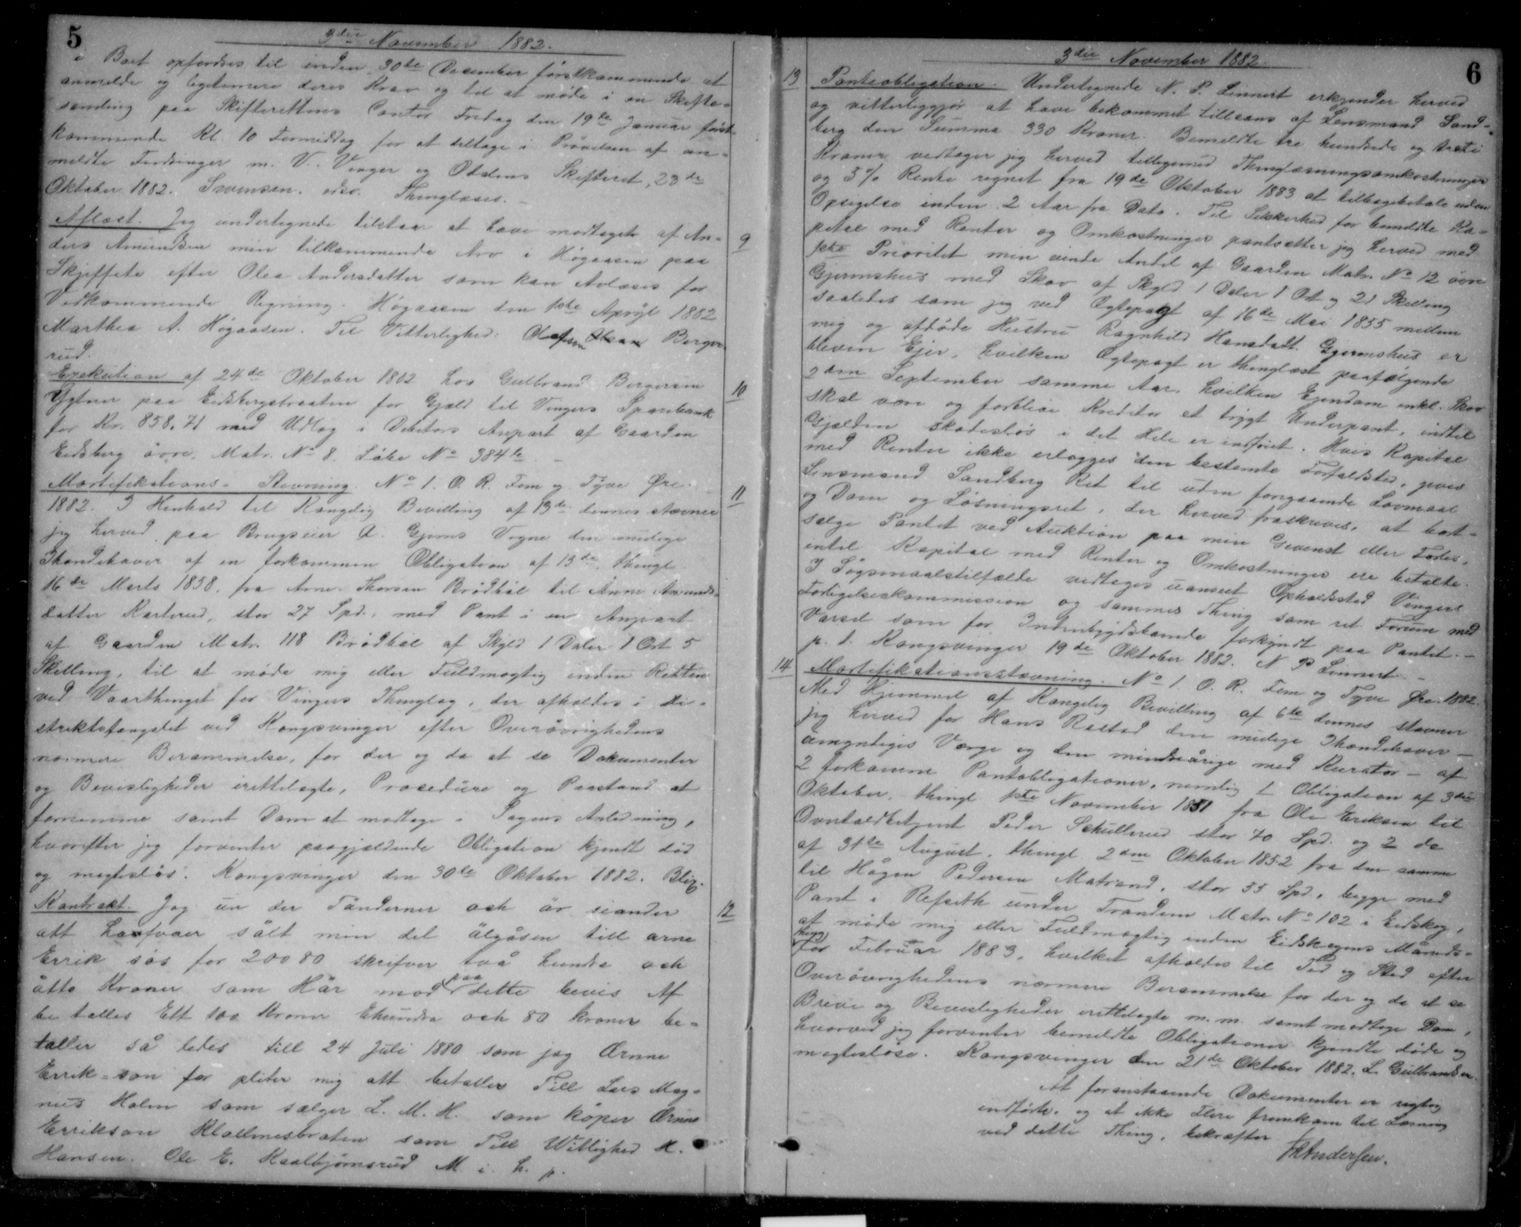 5
3die November 1882.
i Boet opfordres til inden 30te December førstkommende at
anmelde og legitimere deres Krav og til at møde i en Skifte-
samling paa Skifterettens Contor Fredag den 19de Januar først-
kommende Kl. 10 Formiddag for at deltage i Prøvelsen af an-
meldte Fordringer m. V. Vinger og Odalens Skifteret, 23de
Oktober 1882. Svensen. Thinglæses.
Aflæst. Jeg undertegnede tilstaar at have modtaget af An-
9
ders Amundsen min tilkommende Arv i Høgaasen paa
Skjeffete efter Olea Andersdatter som kan Avlæses for
Vedkommende Regning. Høgaasen den 1ste Apryl 1882
Marthea A. Høgaasen. Til Vitterlighed: Berger-
rud.
Exekution af 24de Oktober 1882 hos Gulbrand Bergersen
10
paa Eidsbergstraaten for Gjæld til Vingers Sparebank
for Kr. 858,71 med Udlæg i Debitors Anpart af Gaarden
Eidsberg øvre, Matr. No 8. Løbe No 384
Mortifikations-Stevning. No 1. O. R. Fem og Tyve Øre.
11
1882. I Henhold til Kongelig Bevilling af 13de dennes stævner
jeg herved paa Brugseier A. Gjerns Vegne den mulige
Ihændehaver af en forkommen Obligation af 13de, thingl.
16de Marts 1858, fra Arne Thorsen Brødbøl til Anne Amunds-
datter stor 27 Spd. med Pant i en Anpart
af Gaarden Matr. 118 Brødbøl af Skyld 1 Daler 1 Ort 5
Skilling, til at møde mig eller Fuldmægtig inden Retten
ved Vaarthinget for Vingers Thinglag, der afholdes i Di-
striktsfængslet ved Kongsvinger efter Overøvrighedens
nærmere Berammelse, for der og da at se Dokumenter
og Bevisligheder irettelagte, Procedure og Paastand at
fornemme samt Dom at modtage i Sagens Anledning,
hvorefter jeg forventer paagjældende Obligation kjendt død
og magtesløs. Kongsvinger den 30te Oktober 1882.
Kontrakt. Jag un der Tänderner och är seander
12
att Laafvaer sält min del älgåsen till arne
Errik sös for 200 80 skrifver två hundra och
åtto Kroner som Här mod paa dette bevis Af
be talles Ett 100 Kroner Ehundra och 80 kroner be-
taller så ledes till 24 Juli 1880 som jag Ærnne
Errik=son for pliter mig att betaller Till Lars Mag-
nus Holm som sælger L. M. H. som köper Ærnne
Errikson som Till Witlighed H.
Hansen. Ole E. Kaalbjørnsrud M i. h. p.
6
3die November 1882
13
Pantobligation. Undertegnede N. P. Linnert erkjender herved
og vitterliggjør at have bekommet tillaans af Lensmand Sand-
berg den Summa 330 Kroner. Bemeldte tre hundrede og treti
Kroner vedtager jeg herved tilligemed Thinglæsningsomkostninger
og 5% Rente regnet fra 19de Oktober 1883 at tilbagebetale uden
Opsigelse inden 2 Aar fra Dato. Til Sikkerhed for bemeldte Ka-
pital med Renter og Omkostninger pantsætter jeg herved med
1ste Prioritet min eiende Andel af Gaarden Matr. No 12 øvre
Gjermshus med Skov af Skyld 1 Daler 1 Ort og 21 Skilling
saaledes som jeg ved Egtepagt af 16de Mai 1855 mellem
mig og afdøde Hustru Ragnhild Hansdatt. Gjermshus er
bleven Ejer, hvilken Egtepagt er thinglæst paafølgende
2den September samme Aar, hvilken Ejendom inkl. Skov
skal være og forblive Kreditor et trygt Underpant, indtil
Gjælden skadesløs i det Hele er indfriet. Hvis Kapital
med Renter ikke erlægges den bestemte Forfaldstid, gives
Lensmand Sandberg Ret til uden foregaaende Lovmaal
og Dom og Løsningsret, der herved fraskrives, at bort-
sælge Pantet ved Auktion paa min Gevinst eller Forlis,
indtil Kapital med Renter og Omkostninger ere betalte.
I Søgsmaalstilfælde vedtages uanseet Opholdssted Vingers
Forligelseskommission og sammes Thing som ret Forum med
Varsel som for Indenbygdsboende forkyndt paa Pantet.
p. t. Kongsvinger 19de Oktober 1882. N. P. Linnert
14
Mortifikationsstævning. No 1. O. R. Fem og Tyve Øre. 1882.
Med Hjemmel af Kongelig Bevilling af 6te dennes stævner
jeg herved for Hans Rastad den mulige Ihændehaver –
umyndiges Værge og den mindreårige med Kurator – af
2 forkomne Pantobligationer, nemlig 1 Obligation af 3die
Oktober, thingl. 1ste November 1851 fra Ole Eriksen til
Peder Schullerud stor 70 Spd. og 2 do
af 31te August, thingl. 2den Oktober 1852 fra den samme
til Hågen Pedersen Matrand, stor 55 Spd., begge med
Pant i Refsith under Trandem Matr. No 102 i Eidskog,
at møde mig eller Fuldmægtig inden Eidskogens Måneds-
thing for Februar 1883, hvilket afholdes til Tid og Sted efter
Overøvrighedens nærmere Berammelse for der og da at se
Breve og Bevisligheder irettelagte m.m. samt modtage Dom,
hvorved jeg forventer bemeldte Obligationer kjendte døde og
magtesløse. Kongsvinger den 21de Oktober 1882. L. Gulbrandsen.
At foranstaaende Dokumenter er rigtig
indførte, og at ikke flere fremkom til Læsning
ved dette Thing, bekræfter
Andersen.